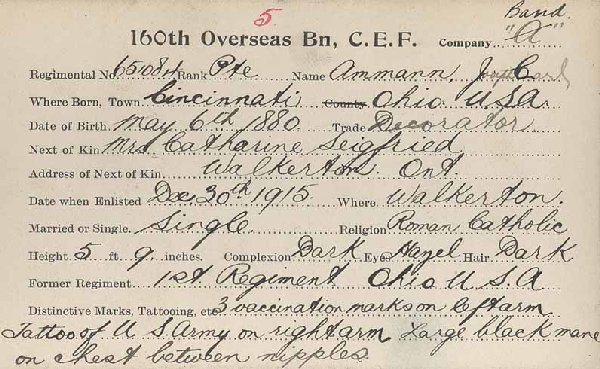 5
Band
160th Overseas Bn, C.E.F. Company "A"
Regimental No. 651084 Rank Pte Name Ammann, C
Where Born, Town Cincinnati County Ohio USA
Date of Birth May 6th 1880 Trade Decorator
Next of Kin Mrs Catharine Seigfried
Address of Next of Kin Walkerton Ont
Date when Enlisted Dec 30th 1915 Where Walkerton.
Married or Single. Single Religion Roman Catholic
Height 5 ft 9 inches. Complexion Dark Eyes Hazel Hair Dark
Former Regiment 1st Regiment Ohio U S A
Distinctive Marks, Tattooing, etc. 3 vaccination marks on left arm
Tattoo of U S Army on right arm Large black
on chest between nipples.